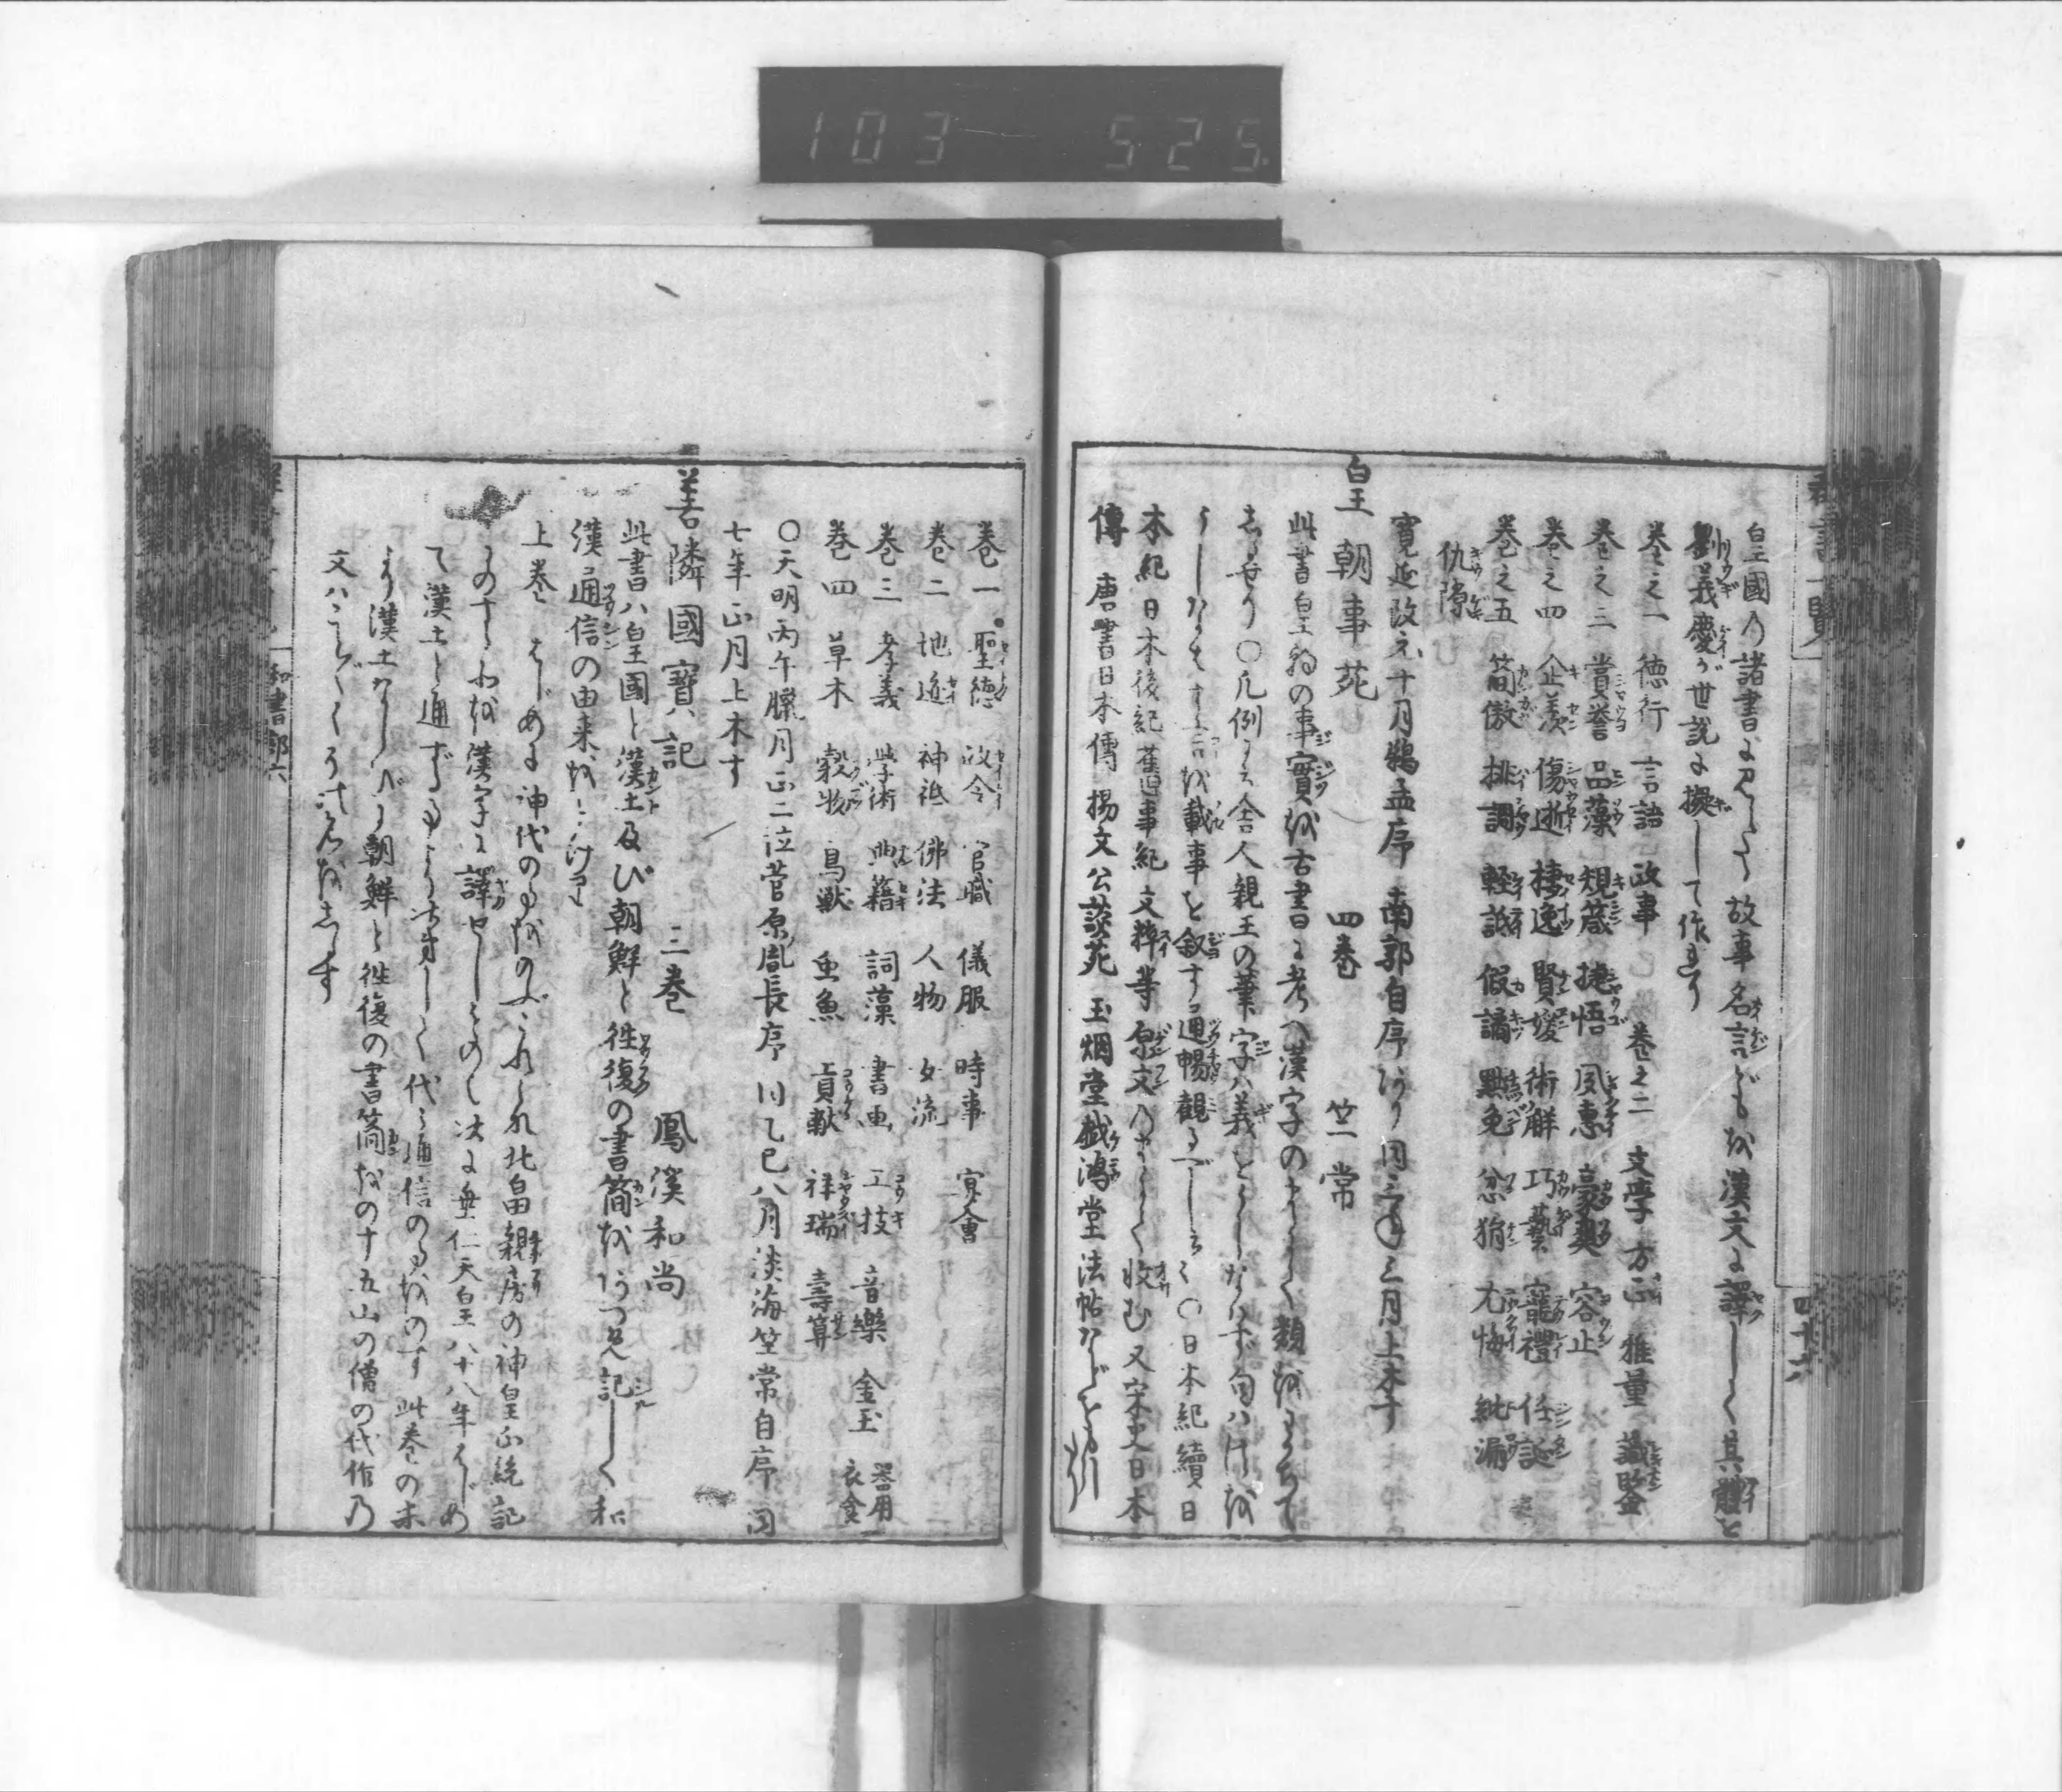 103 525
皇國の諸書に見えたる故事名言どもを漢文に譯して其體を
劉義慶が世説に擬して作れり
巻之一 徳行 言語 政事 巻之二 文學 方正 雅量 識鑒
巻之三 賞誉 品藻 規箴 捷悟 夙惠 豪爽 容止
巻之四 企羨 傷逝 棲逸 賢媛 術解 巧藝 寵禮 任誕
巻之五 簡傲 排調 輕詆 假譎 黜免 忿狷 尤悔 紕漏
仇隙
寛延改元十月鵜孟序 南郭自序あり 同三年三月上木す
皇朝事苑 四巻 竺常
此書皇朝の事實を古書に考へ漢字のまゝ類をわかちて
しるせり 〇凡例に云舎人親王の筆字ハ義を
言を載事を叙する通暢観るべし 〇日本紀續日
本紀日本後紀舊事紀文粹等原文のまゝ収む又宋史日本
傳 唐書日本傳 楊文公談苑 玉烟堂戯鴻堂法帖などをも引り
四十六
巻一 聖徳 政令 官職 儀服 時事 宴會
巻二 地道 神祇 佛法 人物 女流
巻三 孝義 學術 典籍 詞藻 書画 工技 音樂 金玉 器用 衣食
巻四 草木 穀物 鳥獣 虫魚 貢献 祥瑞 壽算
〇天明丙午臘月正二位菅原胤長序 乙巳八月淡海竺常自序 同
七年正月上木す
善隣國寶記 三巻 鳳溪和尚
此書ハ皇國と漢土及び朝鮮と徃復の書簡をあつめ記して和
漢通信の由来を
上巻 はじめに神代の事をのぶこれは北畠親房の神皇正統記
漢字に譯せしものし 次に垂仁天皇八十八年はじめ
て漢土と通ずる事より 代々通信の事をのす 此巻の末
より漢土 朝鮮と徃復の書簡をのす 五山の僧の代作の
文ハ しるす
和書部六